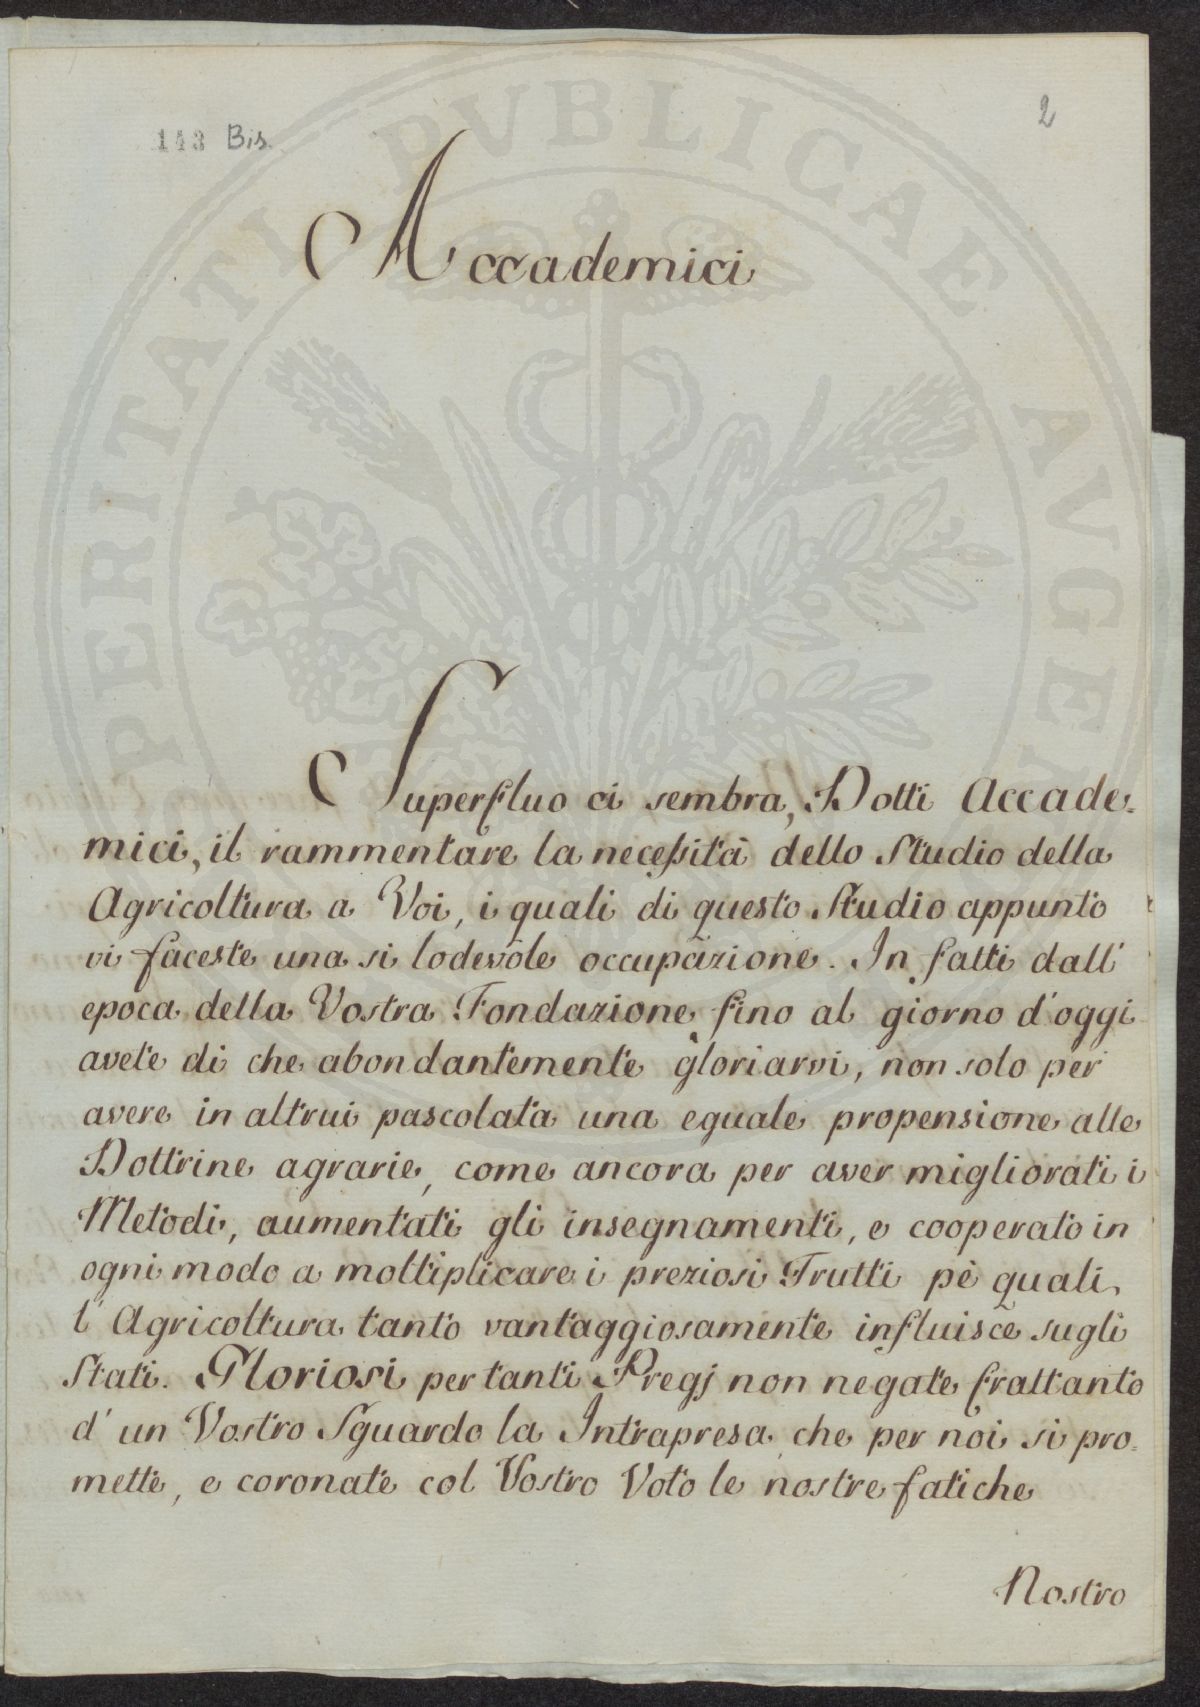 PROSPERITATI PVBLICAE AVGEN
143 Bis
2
Accademici
Superfluo ci sembra, Dotti Accade-
mici, il rammentare la necessità dello Studio della
Agricoltura a Voi, i quali di questo Studio appunto
vi faceste una si lodevole occupazione. In fatti dall'
epoca della Vostra Fondazione fino al giorno d'oggi
avete di che abondantemente gloriarvi, non solo per
avere in altrui pascolata una eguale propensione alle
Dottrine agrarie, come ancora per aver migliorati i
Metodi, aumentati gli insegnamenti, e cooperato in
ogni modo a moltiplicare i preziosi Frutti pè quali
l'Agricoltura tanto vantaggiosamente influisce sugli
Stati. Gloriosi per tanti Pregj non negate frattanto
d'un Vostro Sguardo la Intrapresa che per noi si pro=
mette, e coronate col Vostro Voto le nostre fatiche
Nostro